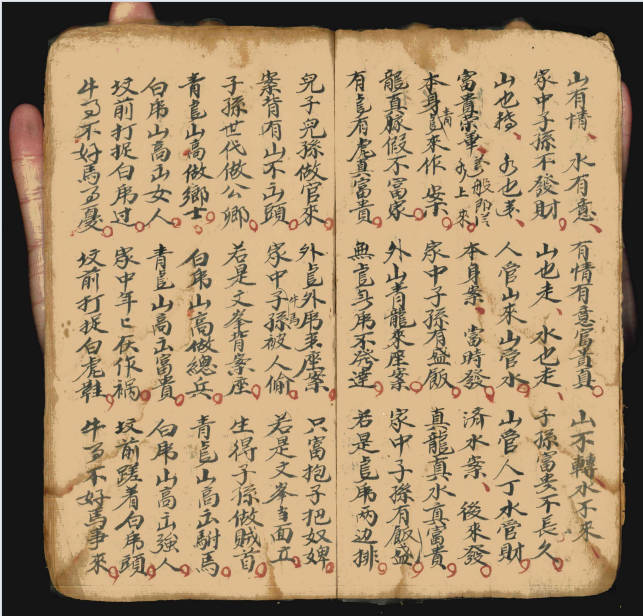 山有情、水有意、有情有意富貴真山不轉水不來、
家中子孫不發財山也走、水也走、子孫富貴不長久
山也搖、水也走、人管山來山管水山管人丁水管財
富貴榮華萬般即是水上來本身案、富時發済水案、後來發
本身青龍來作案家中子孫有盛飯真龍真水真富貴
龍真脉假不富家外山青龍來座案家中子孫有飯盛
有龍有虎真富貴無龍無虎不発達若是龍虎両边排
兒子兒孫做官來外龍外虎來座案只富抱子把奴婢
案背有山不出頭家中子孫牛馬被人偷若是文峯当面立
子孫世代做公卿若是文峯背案座生得子孫做賊首
青龍山高做鄉士白虎山高做總兵青龍山高出駙馬
白虎山高出女人青龍山高出富貴白虎山高出強人
坟前打捉白虎过家中年〻伏作禍坟前蹉着白虎頭
牛馬不好馬馬憂坟前打捉白虎鞋牛馬不好馬事來